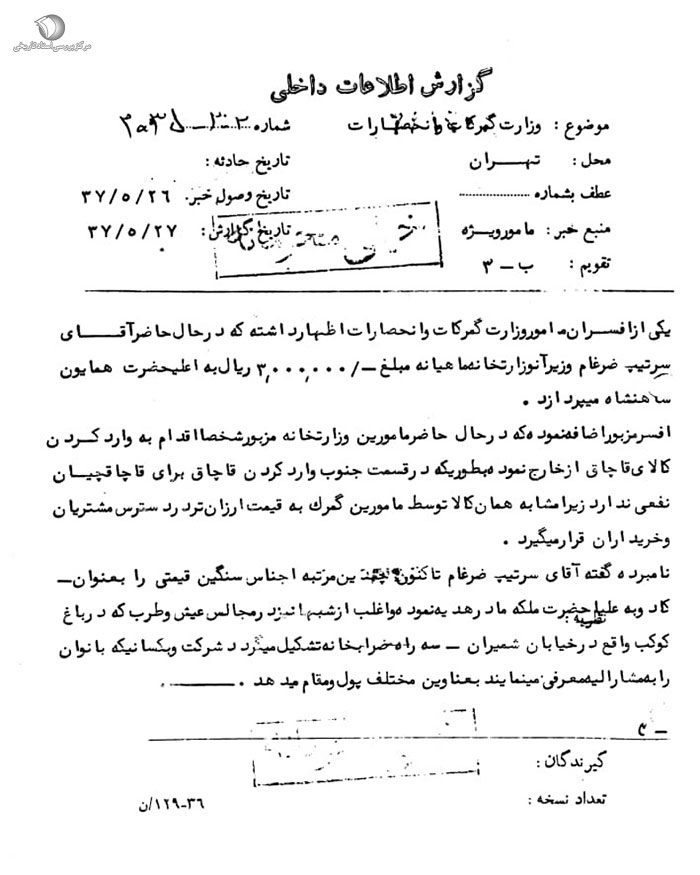 مرکز بررسی اسناد تاریخی
گزارش اطلاعات داخلی
موضوع : وزارت گمرکات و انحصارات
شماره
محل : تهــران
تاریخ حادثه :
عطف بشماره
تاریخ وصول خبر. ۳۷/۵/۲۶
منبع خبر : مامورویژه
تاریخ گزارش : ۳۷/۵/۲۷
خیلی محرمانه
تقویم : ب – ۳
یکی ازافسران مامور وزارت گمرکات وانحصارات اظهارداشته که درحال حاضرآقــای
سرتیپ ضرغام وزیرآنوزارتخانه ماهیانه مبلغ –/۳,۰۰۰,۰۰۰ ریال به اعلیحضرت همایون
شاهنشاه میپردازد .
افسرمزبوراضافه نموده که درحال حاضرمامورین وزارتخانه مزبورشخصااقدام به واردکردن
کالای قاچاق ازخارج نموده بطوریکه درقسمت جنوب واردکردن قاچاق برای قاچاقچیان
نفعی ندارد زیرامشابه همان کالا توسط مامورین گمرک به قیمت ارزان تردردسترس مشتریان
وخریداران قرارمیگیرد .
نامبرده گفته آقای سرتیپ ضرغام تاکنون چندین مرتبه اجناس سنگین قیمتی را بعنوان–
کادوبه علیاحضرت ملکه مادرهدیه نموده واغلب ازشبها نیزدرمجالس عیش وطرب که درباغ
نظریه :
کوکب واقع درخیابان شمیران – سه راه ضرابخانه تشکیل میگردد شرکت وبکسانیکه بانوان
رابه مشارالیه معرفی مینمایند بعناوین مختلف پول ومقام میدهد .
گیرندگان :
تعداد نسخه :
۱۲۹-۳۶/ن